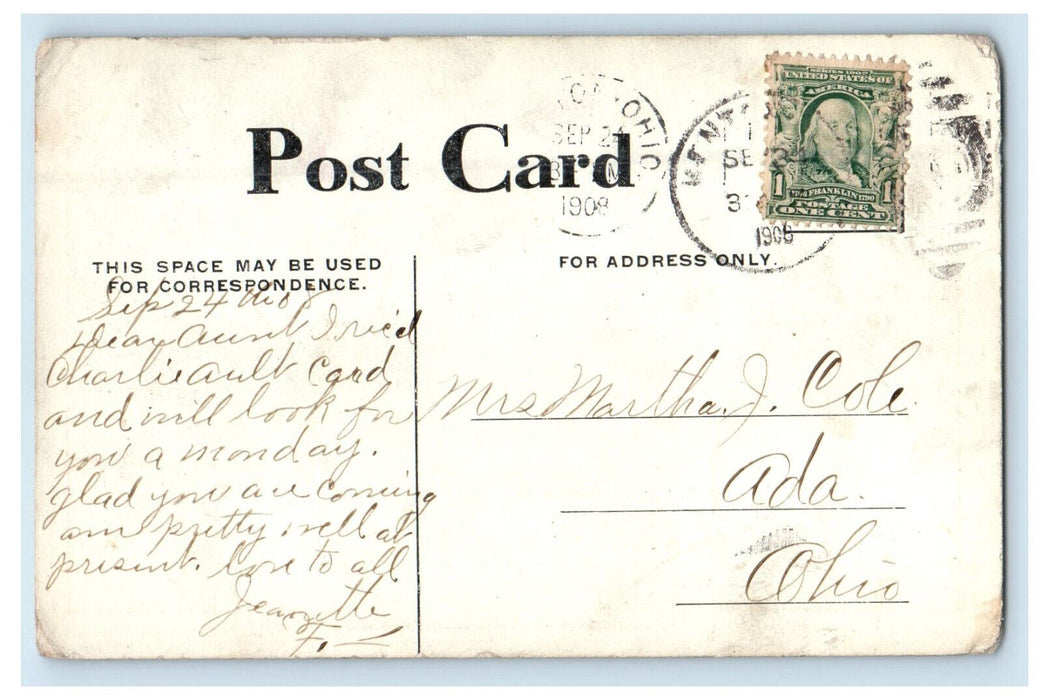 Post Card
OHIO
SEP 24
1908
KENT
SE
3
1908
SERIES 1902
UNITED STATES OF
AMERICA
FRANKLIN 1790
1 POSTAGE 1
ONE CENT
THIS SPACE MAY BE USED
FOR CORRESPONDENCE.
FOR ADDRESS ONLY.
Sep 24
Dear Aunt I rec'd
Charlie Ault Card
and will look for
you a monday.
glad you are coming
am pretty well at
present. love to all
Jeanette
F.
Mrs Martha. J. Cole
Ada.
Ohio